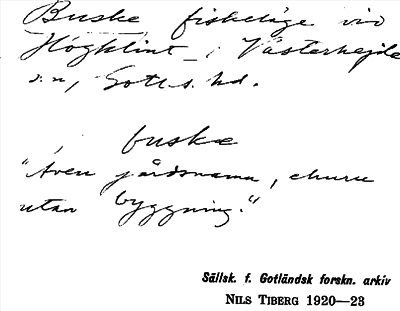 Buske, fiskeläge vid
Högklint i Västerhejde
s:n, Gotl. s. hd.
buskæ
"Även jårdnamn, ehuru
utan byggning."
Sällsk. f. Gotländsk forskn. arkiv
NILS TIBERG 1920—23